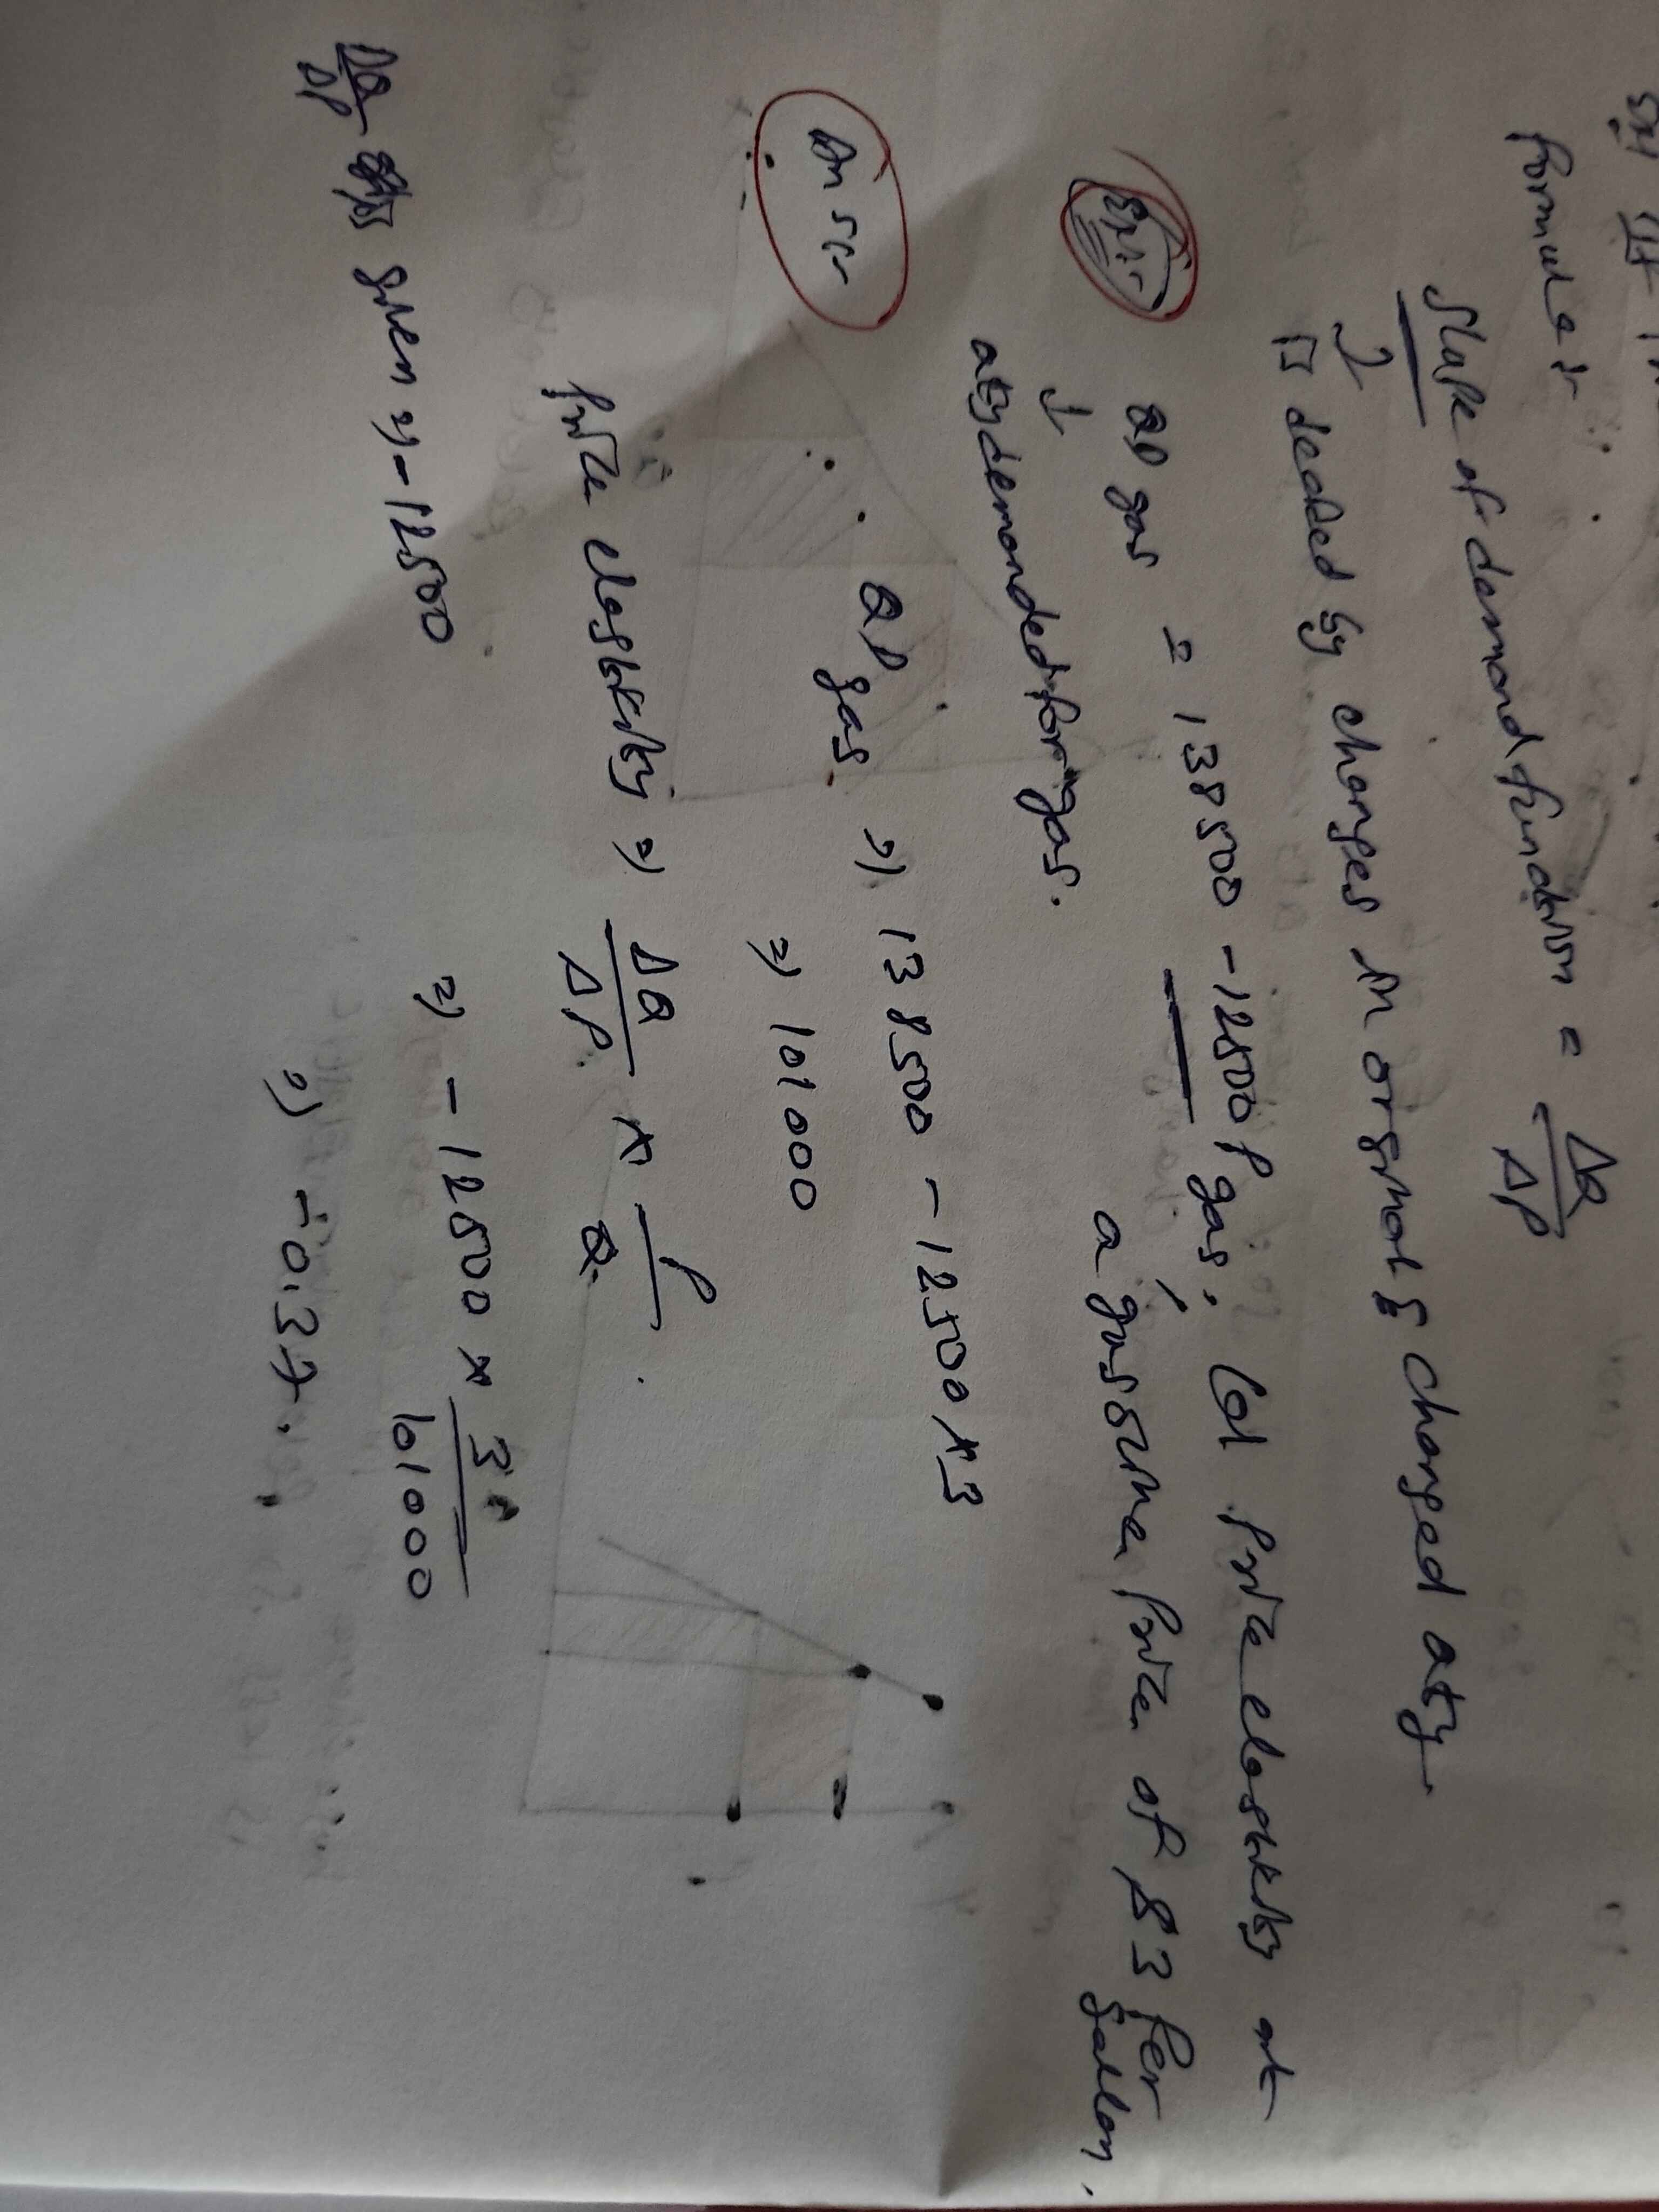 formula :-
Slope of demand function = ΔQ/ΔP
↓
is decided by changes in original & changed qty
Eg:- QD gas = 138500 - 12500 P gas, Cal price elasticity at
↓ a gasoline price of $3 per gallon.
qty demanded for gas.
Ans:- QD gas ⇒ 138500 - 12500 × 3
⇒ 101000
price elasticity ⇒ ΔQ/ΔP × P/Q
ΔQ/ΔP given ⇒ -12500
⇒ -12500 × 3/101000
⇒ -0.37.